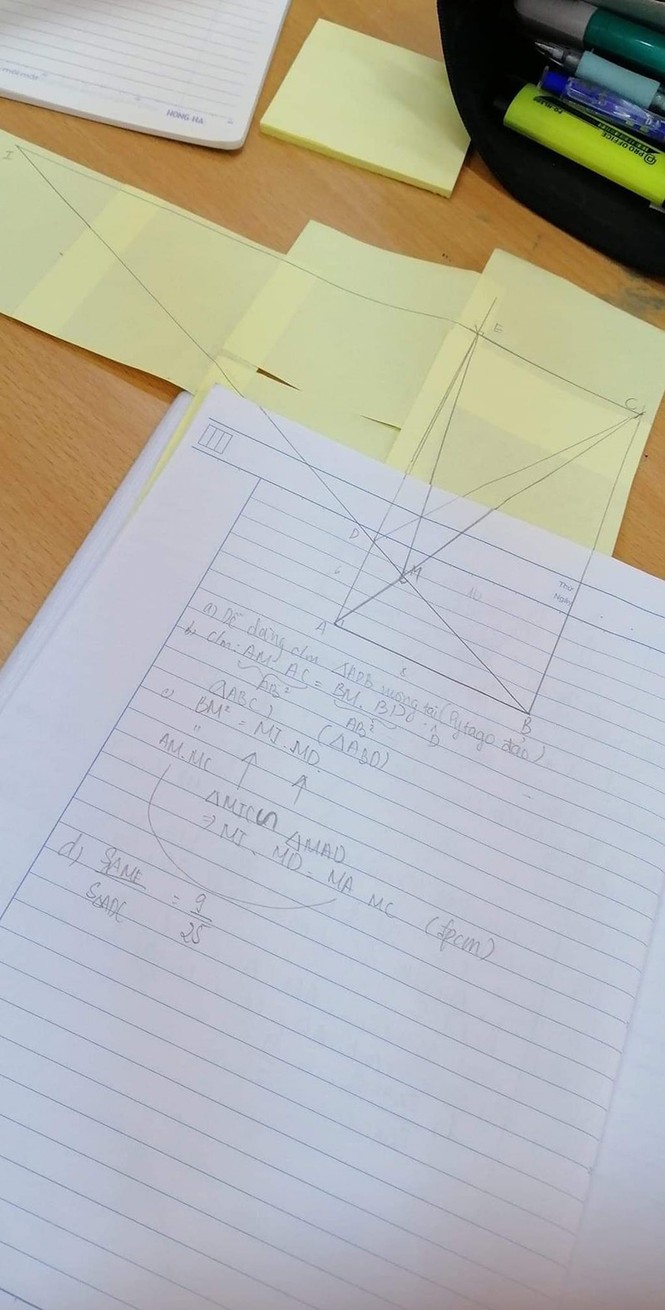 HONG HA
PROOFFICE
I
E
C
D
M
6
10
Thứ
Ngày
A
8
B
a) Dễ dàng c/m ΔADB vuông tại (Pytago đảo)
A
b) C/m: AM. AC = BM. BD
AB² AB²
(ΔABC) (ΔABD)
c) BM² = MI. MD
"
AM. MC
ΔMIC ∽ ΔMAD
⇒ MI. MD = MA. MC (đpcm)
d) SΔAME = 9
SΔADC 25